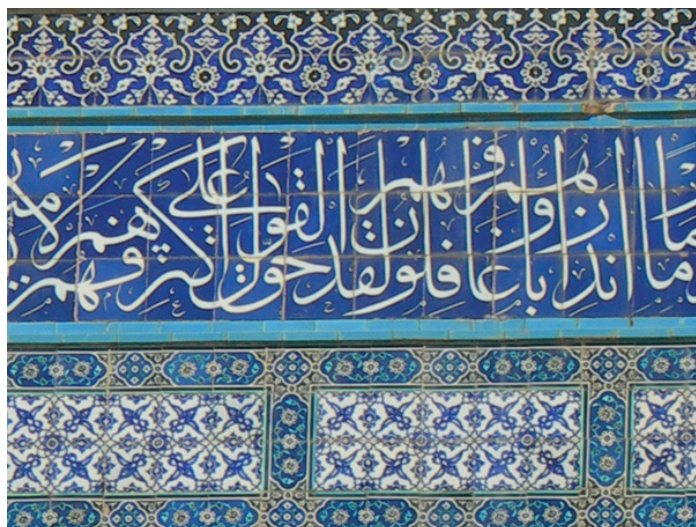 ما أنذر اباؤهم فهم غافلون لقد حق القول على أكثرهم فهم لا